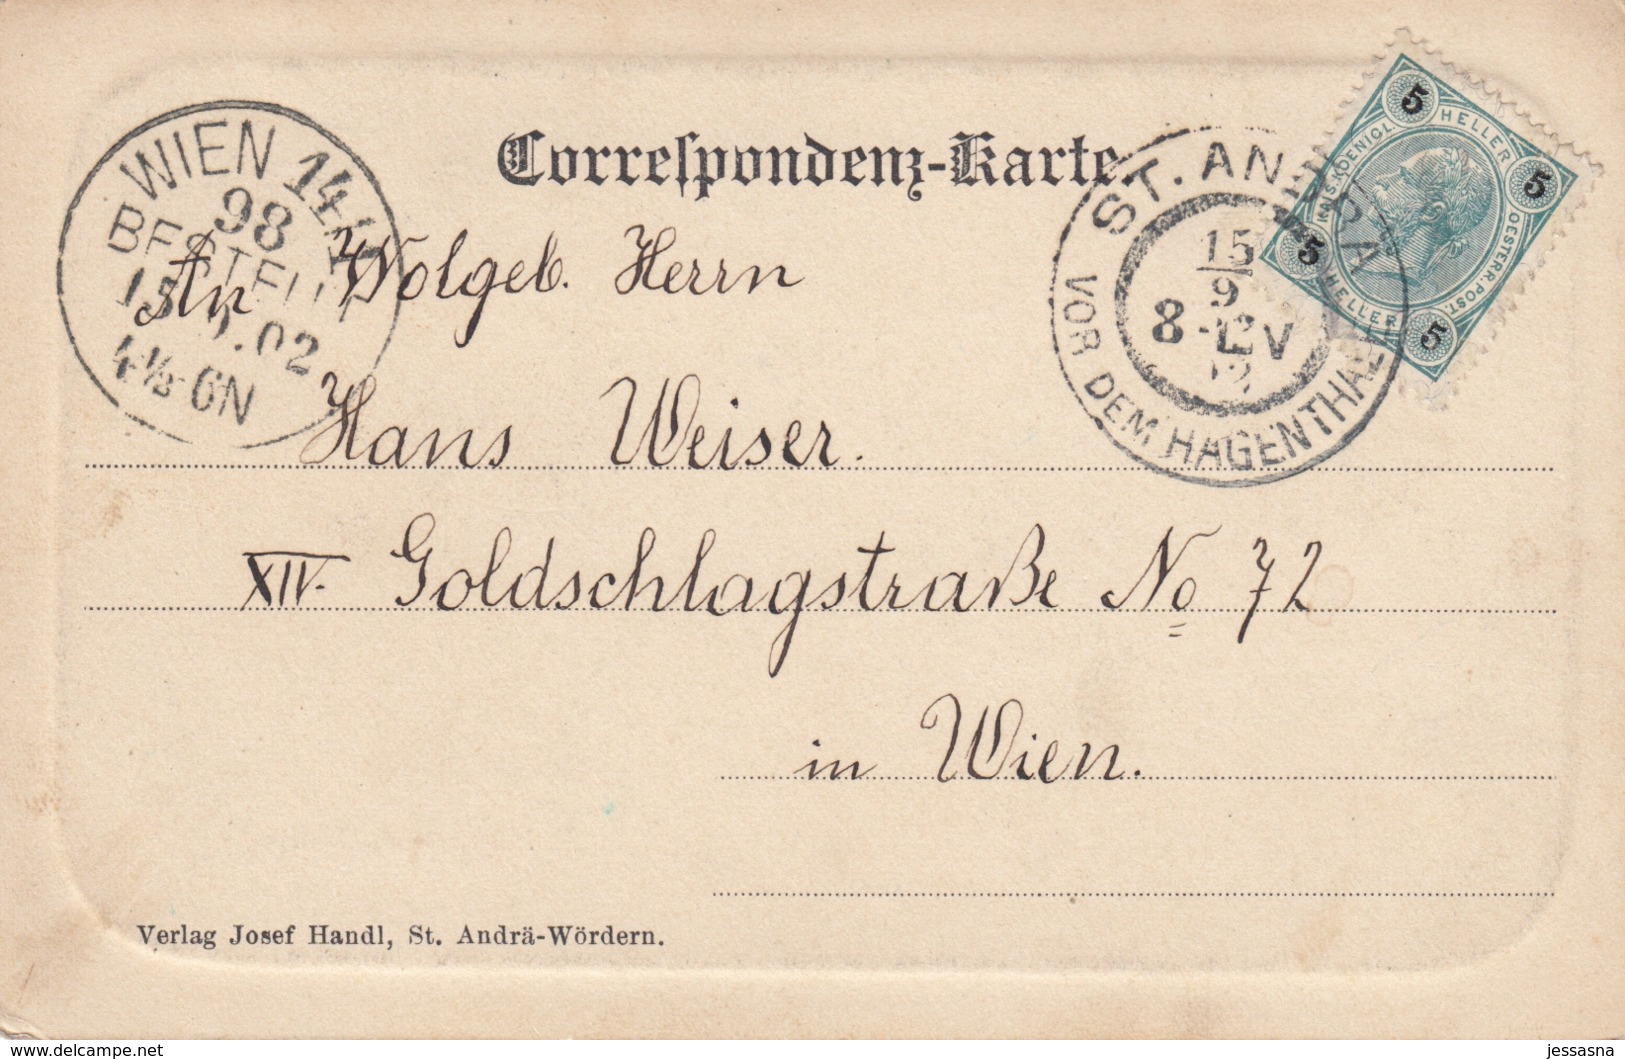 Correspondenz-Karte.
WIEN 14/1
98
BESTELLT
15.9.02
4½ ON
ST. ANDRÄ
VOR DEM HAGENTHALE
15
9
8-12 V
02
5 HELLER 5
KAIS. KOENIGL.
OESTERR. POST.
5 HELLER 5
An Wolgeb. Herrn
Hans Weiser.
XIV. Goldschlagstraße No 72
in Wien.
Verlag Josef Handl, St. Andrä-Wördern.
www.delcampe.net
jessasna